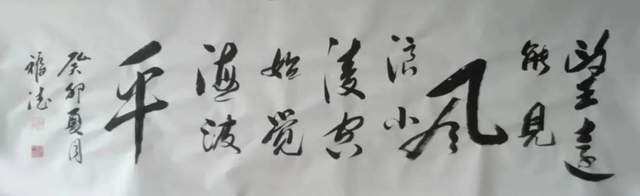 望遠
能見
风
浪小
凌空
始覺
海波
平
癸卯夏月
福